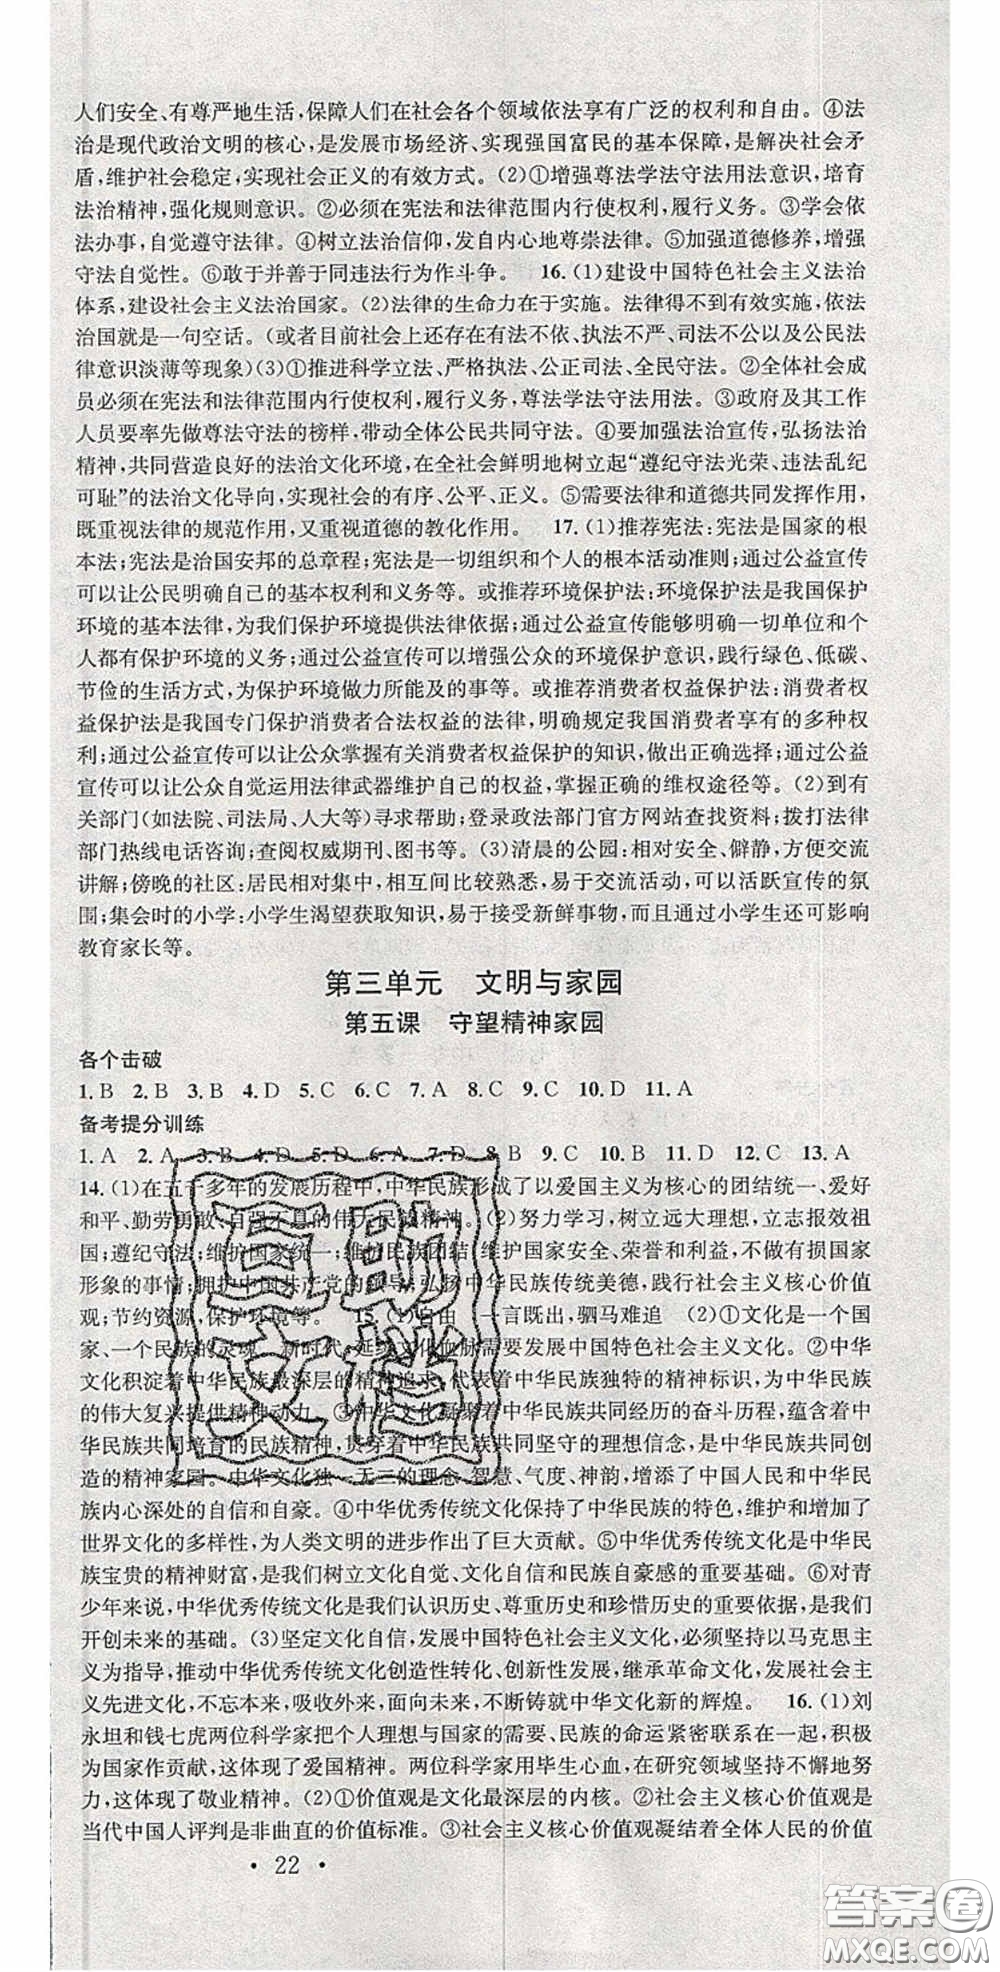 人们安全、有尊严地生活,保障人们在社会各个领域依法享有广泛的权利和自由。④法
治是现代政治文明的核心,是发展市场经济、实现强国富民的基本保障,是解决社会矛
盾,维护社会稳定,实现社会正义的有效方式。(2)①增强尊法学法守法用法意识,培育
法治精神,强化规则意识。②必须在宪法和法律范围内行使权利,履行义务。③学会依
法办事,自觉遵守法律。④树立法治信仰,发自内心地尊崇法律。⑤加强道德修养,增强
守法自觉性。⑥敢于并善于同违法行为作斗争。 16.(1)建设中国特色社会主义法治
体系,建设社会主义法治国家。(2)法律的生命力在于实施。法律得不到有效实施,依法
治国就是一句空话。(或者目前社会上还存在有法不依、执法不严、司法不公以及公民法
律意识淡薄等现象)(3)①推进科学立法、严格执法、公正司法、全民守法。②全体社会成
员必须在宪法和法律范围内行使权利,履行义务,尊法学法守法用法。③政府及其工作
人员要率先做尊法守法的榜样,带动全体公民共同守法。④要加强法治宣传,弘扬法治
精神,共同营造良好的法治文化环境,在全社会鲜明地树立起“遵纪守法光荣、违法乱纪
可耻”的法治文化导向,实现社会的有序、公平、正义。⑤需要法律和道德共同发挥作用,
既重视法律的规范作用,又重视道德的教化作用。 17.(1)推荐宪法:宪法是国家的根
本法;宪法是治国安邦的总章程;宪法是一切组织和个人的根本活动准则;通过公益宣传
可以让公民明确自己的基本权利和义务等。或推荐环境保护法:环境保护法是我国保护
环境的基本法律,为我们保护环境提供法律依据;通过公益宣传能够明确一切单位和个
人都有保护环境的义务;通过公益宣传可以增强公众的环境保护意识,践行绿色、低碳、
节俭的生活方式,为保护环境做力所能及的事等。或推荐消费者权益保护法:消费者权
益保护法是我国专门保护消费者合法权益的法律,明确规定我国消费者享有的多种权
利;通过公益宣传可以让公众掌握有关消费者权益保护的知识,做出正确选择;通过公益
宣传可以让公众自觉运用法律武器维护自己的权益,掌握正确的维权途径等。(2)到有
关部门(如法院、司法局、人大等)寻求帮助;登录政法部门官方网站查找资料;拨打法律
部门热线电话咨询;查阅权威期刊、图书等。(3)清晨的公园:相对安全、僻静,方便交流
讲解;傍晚的社区:居民相对集中,相互间比较熟悉,易于交流活动,可以活跃宣传的氛
围;集会时的小学:小学生渴望获取知识,易于接受新鲜事物,而且通过小学生还可影响
教育家长等。
第三单元 文明与家园
第五课 守望精神家园
各个击破
1. B 2. B 3. B 4. D 5. C 6. C 7. A 8. C 9. C 10. D 11. A
备考提分训练
1. A 2. A 3. B 4. D 5. D 6. A 7. D 8. B 9. C 10. B 11. D 12. C 13. A
14.(1)在五千多年的发展历程中,中华民族形成了以爱国主义为核心的团结统一、爱好
和平、勤劳勇敢、自强不息的伟大民族精神。(2)努力学习,树立远大理想,立志报效祖
国;遵纪守法;维护国家统一;维护民族团结;维护国家安全、荣誉和利益,不做有损国家
形象的事情;拥护中国共产党的领导;弘扬中华民族传统美德,践行社会主义核心价值
观;节约资源,保护环境等。 15.(1)自由 一言既出,驷马难追 (2)①文化是一个国
家、一个民族的灵魂。新时代,延续文化血脉需要发展中国特色社会主义文化。②中华
文化积淀着中华民族最深层的精神追求,代表着中华民族独特的精神标识,为中华民族
的伟大复兴提供精神动力。③中华文化凝聚着中华民族共同经历的奋斗历程,蕴含着中
华民族共同培育的民族精神,贯穿着中华民族共同坚守的理想信念,是中华民族共同创
造的精神家园。中华文化独一无三的理念、智慧、气度、神韵,增添了中国人民和中华民
族内心深处的自信和自豪。④中华优秀传统文化保持了中华民族的特色,维护和增加了
世界文化的多样性,为人类文明的进步作出了巨大贡献。⑤中华优秀传统文化是中华民
族宝贵的精神财富,是我们树立文化自觉、文化自信和民族自豪感的重要基础。⑥对青
少年来说,中华优秀传统文化是我们认识历史、尊重历史和珍惜历史的重要依据,是我们
开创未来的基础。(3)坚定文化自信,发展中国特色社会主义文化,必须坚持以马克思主
义为指导,推动中华优秀传统文化创造性转化、创新性发展,继承革命文化,发展社会主
义先进文化,不忘本来,吸收外来,面向未来,不断铸就中华文化新的辉煌。 16.(1)刘
永坦和钱七虎两位科学家把个人理想与国家的需要、民族的命运紧密联系在一起,积极
为国家作贡献,这体现了爱国精神。两位科学家用毕生心血,在研究领域坚持不懈地努
力,这体现了敬业精神。(2)①价值观是文化最深层的内核。②社会主义核心价值观是
当代中国人评判是非曲直的价值标准。③社会主义核心价值观凝结着全体人民的价值
• 22 •
答案圈
MXQE.COM